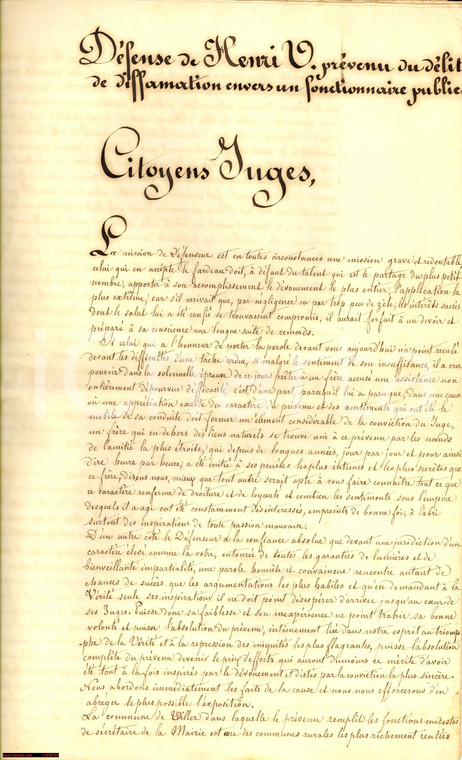 Défense de Henri V. prévenu du délit
de diffamation envers un fonctionnaire public
Citoyens Juges,
La mission de Défenseur est en toutes circonstances une mission grave et redoutable
celui qui en accepte le fardeau doit, à défaut du talent qui est le partage du plus petit
nombre, apporter à son accomplissement le dévouement le plus entier, l'application la
plus extrême, car s'il arrivait que, par négligence ou par trop peu de zèle, les intérêts sacrés
dont le salut lui a été confié se trouvassent compromis, il aurait forfait à un devoir et
préparé à sa conscience une longue suite de remords.
Si celui qui a l'honneur de porter la parole devant vous aujourd'hui n'a point reculé
devant les difficultés d'une tâche ardue, si malgré le sentiment de son insuffisance, il a cru
pouvoir dans la solennelle épreuve de ce jour prêter à un frère accusé une assistance non
entièrement dépourvue d'efficacité, c'est d'une part, parce qu'il lui a paru que, dans une cause
où une appréciation exacte du caractère du prévenu et des sentiments qui ont été le
mobile de sa conduite doit former un élément considérable de la conviction du Juge,
un frère qui en dehors des liens naturels se trouve uni à ce prévenu par les nœuds
de l'amitié la plus étroite, qui depuis de longues années, jour par jour et pour ainsi
dire heure par heure, a été initié à ses pensées les plus intimes et les plus secrètes que
ce frère, disons nous, mieux que tout autre serait apte à vous faire connaître tout ce que
ce caractère renferme de droiture et de loyauté et combien les sentiments sous l'empire
desquels il a agi ont été constamment désintéressés, empreints de bonne foi, à l'abri
surtout des inspirations de toute passion mauvaise.
D'un autre côté le Défenseur a la confiance absolue que devant une juridiction d'un
caractère élevé comme la votre, entourée de toutes les garanties de lumières et de
bienveillante impartialité, une parole honnête et convaincue rencontre autant de
chances de succès que les argumentations les plus habiles et qu'en demandant à la
Vérité seule ses inspirations il ne doit point désespérer d'arriver jusqu'au cœur de
ses Juges. Puisse donc sa faiblesse et son inexpérience ne point trahir sa bonne
volonté et puisse l'absolution du prévenu, intimement liée dans notre esprit au triom-
phe de la Vérité et à la répression des iniquités les plus flagrantes, puisse l'absolution
complète du prévenu devenir le prix d'efforts qui auront du moins ce mérite d'avoir
été tout à la fois inspirés par le dévouement et dictés par la conviction la plus sincère.
Nous abordons immédiatement les faits de la cause et nous nous efforcerons d'en
abréger le plus possible l'exposition.
La commune de Willer dans laquelle le prévenu remplit les fonctions modestes
de secrétaire de la Mairie est une des communes rurales les plus richement rentées